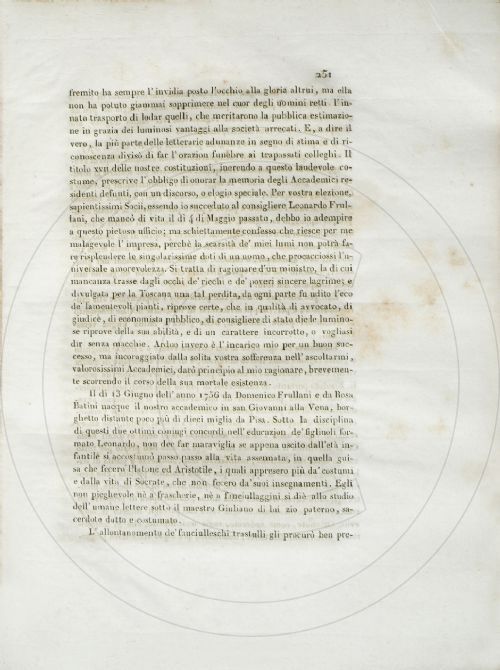 251
fremito ha sempre l'invidia posto l'occhio alla gloria altrui, ma ella
non ha potuto giammai sopprimere nel cuor degli uomini retti l'in-
nato trasporto di lodar quelli, che meritarono la pubblica estimazio-
ne in grazia dei luminosi vantaggi alla società arrecati. E, a dire il
vero, la più parte delle letterarie adunanze in segno di stima e di ri-
conoscenza divisò di far l'orazion funebre ai trapassati colleghi. Il
titolo xvii delle nostre costituzioni, inerendo a questo laudevole co-
stume, prescrive l'obbligo di onorar la memoria degli Accademici re-
sidenti defunti, con un discorso, o elogio speciale. Per vostra elezione,
sapientissimi Socii, essendo io succeduto al consigliere Leonardo Frul-
lani, che mancò di vita il dì 4 di Maggio passato, debbo io adempire
a questo pietoso ufficio; ma schiettamente confesso che riesce per me
malagevole l'impresa, perchè la scarsità de' miei lumi non potrà fa-
re risplendere le singolarissime doti di un uomo, che procacciossi l'u-
niversale amorevolezza. Si tratta di ragionare d'un ministro, la di cui
mancanza trasse dagli occhi de' ricchi e de' poveri sincere lagrime; e
divulgata per la Toscana una tal perdita, da ogni parte fu udito l'eco
de' lamentevoli pianti, riprove certe, che in qualità di avvocato, di
giudice, di economista pubblico, di consigliere di stato die' le lumino-
se riprove della sua abilità, e di un carattere incorrotto, o vogliasi
dir senza macchie. Arduo invero è l'incarico mio per un buon suc-
cesso, ma incoraggiato dalla solita vostra sofferenza nell'ascoltarmi,
valorosissimi Accademici, darò principio al mio ragionare, brevemen-
te scorrendo il corso della sua mortale esistenza.
Il dì 13 Giugno dell'anno 1756 da Domenico Frullani e da Rosa
Batini nacque il nostro accademico in san Giovanni alla Vena, bor-
ghetto distante poco più di dieci miglia da Pisa. Sotto la disciplina
di questi due ottimi coniugi concordi nell'educazion de' figliuoli for-
mato Leonardo, non dee far maraviglia se appena uscito dall'età in-
fantile si accostumò passo passo alla vita assennata, in quella gui-
sa che fecero Platone ed Aristotile, i quali appresero più da' costumi
e dalla vita di Socrate, che non fecero da' suoi insegnamenti. Egli
non pieghevole nè a frascherie, nè a fanciullaggini si diè allo studio
dell'umane lettere sotto il maestro Giuliano di lui zio paterno, sa-
cerdote dotto e costumato.
L'allontanamento de' fanciulleschi trastulli gli procurò ben pre-